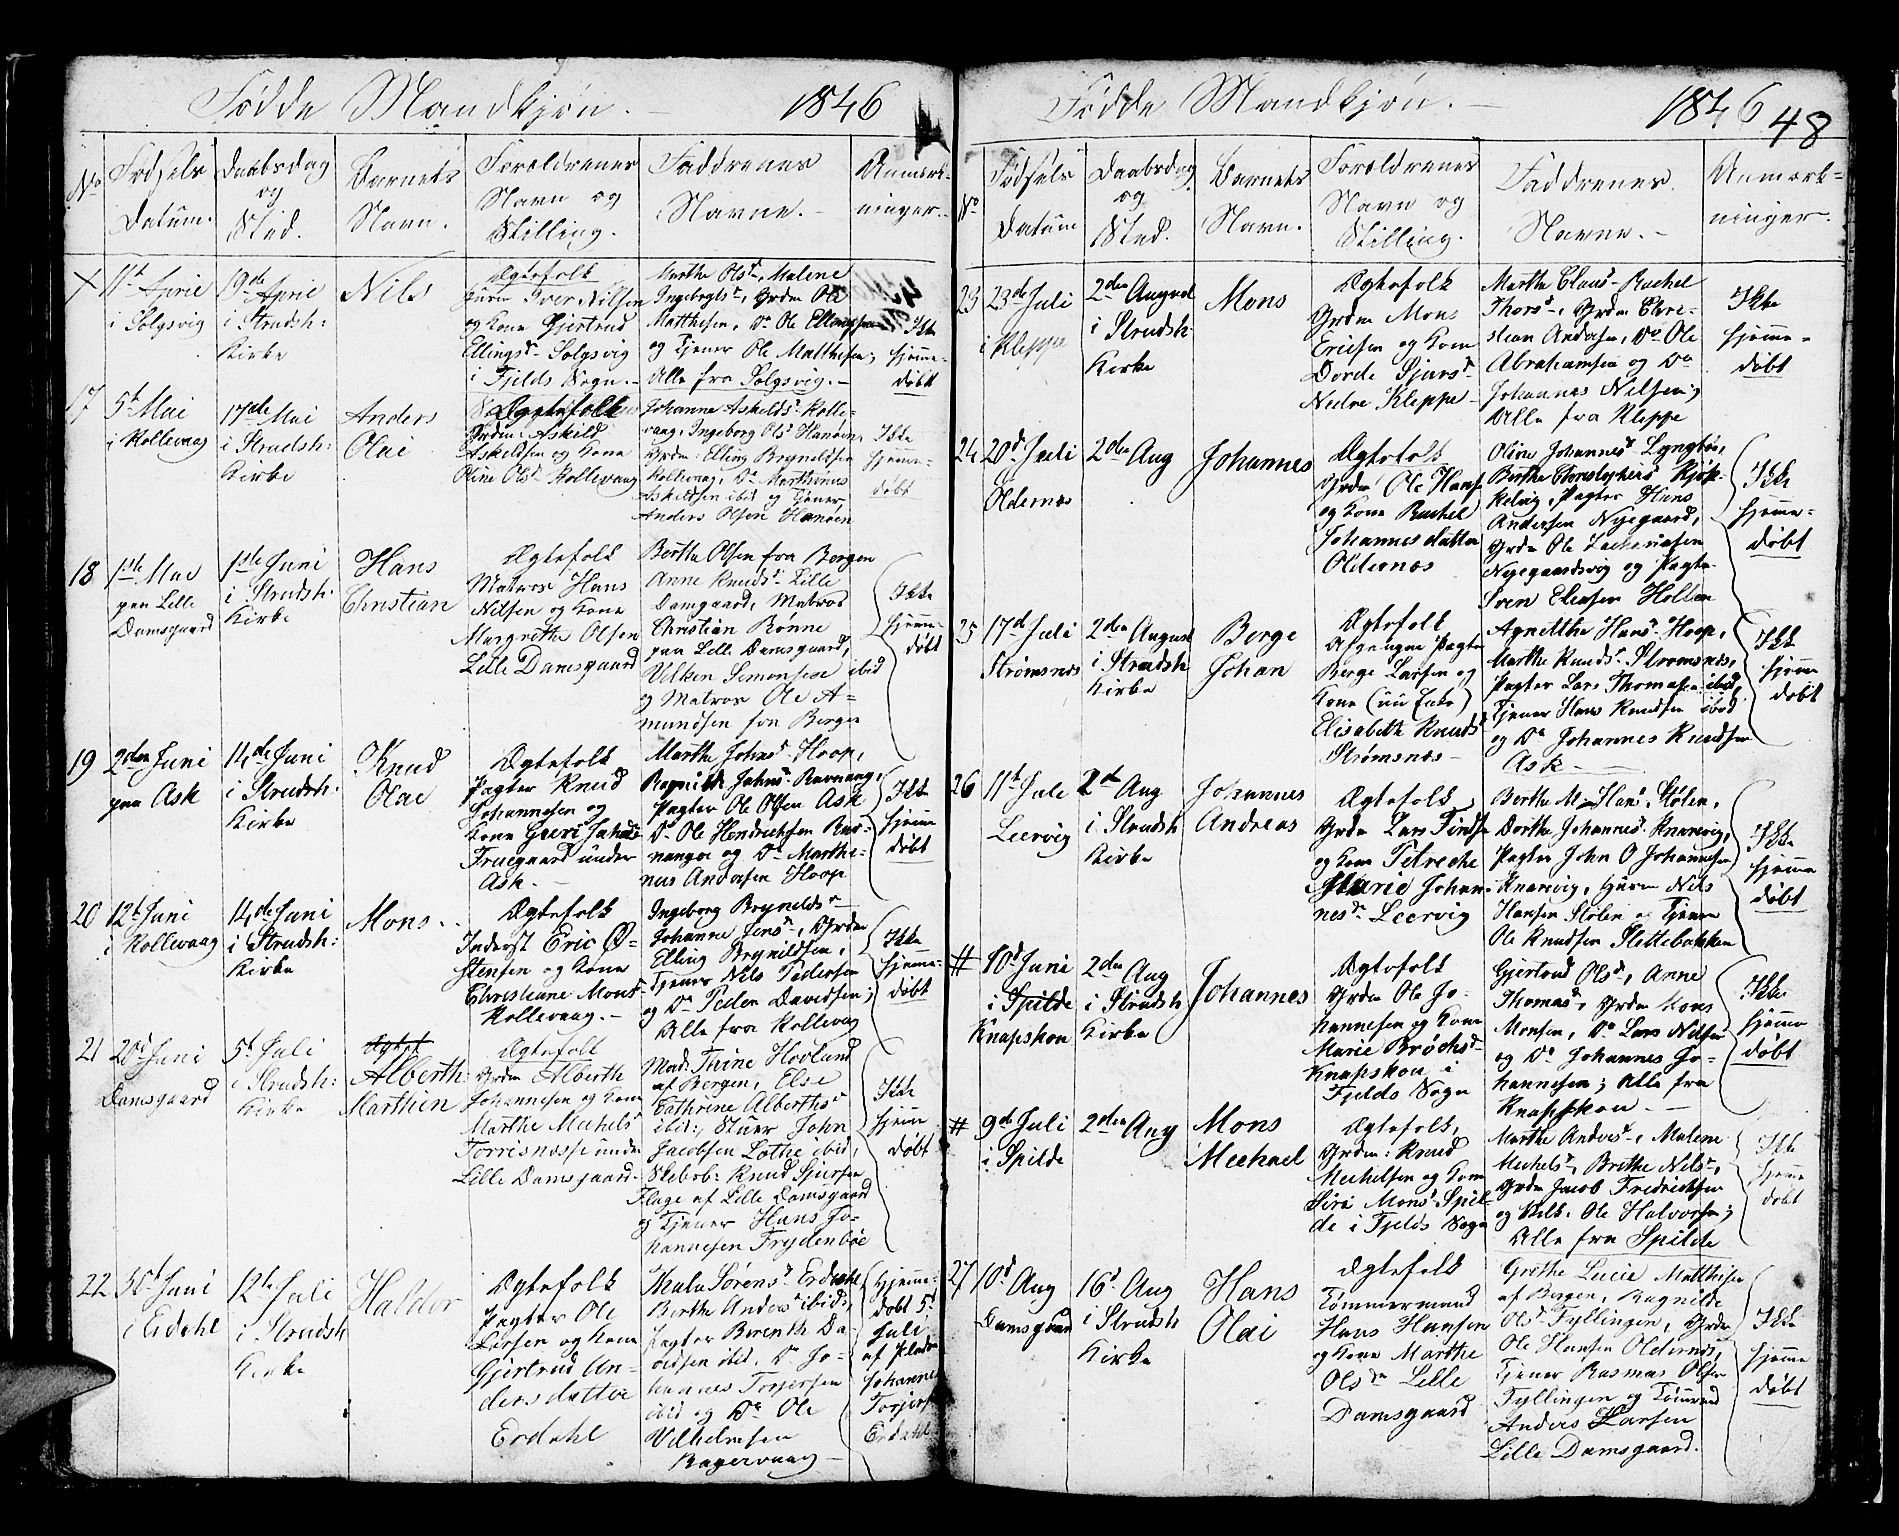 Fødde Mandkjøn. 1846
No
Fødsels Datum.
Daabsdag og Sted.
Barnets Navn.
Foreldrenes Navn og Stilling.
Faddrenes Navne.
Anmerkninger.
11te April
i Solgsvig
19de April
i Strudsh:
Kirke
Nils
Ægtefolk
Iver Nilsen
og Kone Gjertrud
Ellingsd. Solgsvig
i Fjelds Sogn.
Marthe Olsd., Malene
Ingebrgtsd., Grdm Ole
Matthesen, Do Ole Ellingsen
og Tjener Ole Matthesen;
Alle fra Solgsvig.
Ikke
hjemme-
døbt
17
5t Mai
i Kollevaag
17de Mai
i Strudsh:
Kirke
Anders
Olai
Ægtefolk
Grdm: Askild
Askildsen og Kone
Oline Olsd. Kollevaag
Johanne Askildsd. Kolle-
vaag, Ingeborg Olsd. Hanøen,
Grdm: Elling Brynildsen
Kollevaag, Do Marthinus
Askildsen ibid og Tjener
Anders Olsen Hanøen
Ikke
hjemme-
døbt
18
1ste Mai
paa Lille
Damsgaard
1ste Juni
i Strudsh:
Kirke
Hans
Christian
Ægtefolk
Matros Hans
Nilsen og Kone
Margrethe Olsen
Lille Damsgaard
Berthe Olsen fra Bergen
Anne Knudsd. Lille
Damsgaard, Matros
Christian Rønne
paa Lille Damsgaard,
Velken Simonsen ibid
og Matros Ole A-
mundsen fra Bergen
Ikke
hjemme-
døbt
19
2den Juni
paa Ask
14de Juni
i Strudsh:
Kirke
Knud
Olai
Ægtefolk
Pagter Knud
Johannesen og
Kone
Fruegaard under
Ask.
Marthe Johnsd. Hoop,
Ragnilde Johnsd. Ravnang,
Pagter Ole Olsen Ask
Do Ole Hendricksen Rav-
nange og Do Marthi-
nus Andersen Hoop
Ikke
hjemme
døbt
20
12t Juni
i Kollevaag
14de Juni
i Strudsh:
Kirke
Mons.
Ægtefolk
Inderst Eric Ø-
stensen og Kone
Christiane Monsd.
Kollevaag.
Ingeborg Brynildsd.
Johanne Jensd., Grdm
Elling Brynildsen,
Tjener Nils Pedersen
og Do Peder Davidsen;
Alle fra Kollevaag
Ikke
hjemme-
døbt
21
20d Juni
Damsgaard
5t Juli
i Strudsh:
Kirke
Alberth
Marthien
Ægtefolk
Grdm Alberth
Johannesen og Kone
Marthe Michelsd.
Torrisnæsse under
Lille Damsgaard.
Mad: Trine Hovland
af Bergen, Else
Cathrine Alberthsd.
ibid:, Stuer John
Jacobsen Lothe ibid,
Skibsb: Knud Sjursen
Flage af Lille Damsgaard
og Tjener Hans Jo-
hannesen Frydenbøe
Ikke
hjemme
døbt
22
30t Juni
i Erdahl
12te Juli
i Strudsh
Kirke
Haldor
Ægtefolk
Pagter Ole
Larsen og Kone
Gjertrud An-
dersdatter
Erdahl
Sørensd. Erdahl
Berthe Andersd. ibid,
Pagter Berenth Da-
vidsen ibid, Do Jo-
hannes Torjersen
ibid og Do Ole
Vilhelmsen
Bagervaag
Hjemme-
døbt 5t
Juli
af
Johannes
Torjersen
Erdahl
Fødde Mandkjøn. 1846 48
No
Fødsels Datum
Daabsdag og Sted.
Barnets Navn.
Foreldrenes Navn og Stilling.
Faddrenes Navne.
Anmerkninger.
23
23de Juli
i Kleppe
2den August
i Strudsh.
Kirke
Mons
Ægtefolk
Grdm Mons
Ericsen og Kone
Dorde Sjursd.
Nedre Kleppe
Marthe Clausd. Rachel
Thorsd., Grdm Chri-
stian Andersen, Do Ole
Abrahamsen og Do
Johannes Nilsen;
Alle fra Kleppe
Ikke
hjemme-
døbt
24
20d Juli
Oldernæs
2den Aug
Johannes
Ægtefolk
Grdm Ole Hansen
og Kone Rachel
Johannesdatter
Oldernæs
Oline Johannesd. Lyngbøe,
Berthe Kjøk-
kelvig, Pagter Hans
Andersen Nyegaard,
Grdm Ole Zachariasen
Nyegaardsvig og Pagter
Sven Eliasen Hollen
Ikke
hjemme-
døbt
25
17d Juli
Strømsnæs
2den August
i Strudsh
Kirke
Berge
Johan
Ægtefolk
Afgangne Pagter
Berge Larsen og
Kone (nu Enke)
Elisabeth Knudsd.
Strømsnæs
Agnethe Hansd. Hoop,
Marthe Knudsd. Stromsnæs,
Pagter Lars Thomasen ibid,
Tjener Hans Knudsen ibid
og Do Johannes Knudsen
Ask
Ikke
hjemme
døbt
26
11t Juli
Leervig
2de Aug
i Strudsh
Kirke
Johannes
Andreas
Ægtefolk
Grdm Lars Findsen
og Kone Petreche
Marie Johan-
nesd. Leervig
Berthe M. Hansd. Stølen,
Dorthe Johannesd. Knarevig,
Pagter John O Johannesen
Knarevig, Huusm Nils
Hansen Stølen og Tjener
Ole Knudsen Slettebakken
Ikke
hjemme
døbt
#
10d Juni
i Spilde
Knapskou
2den Aug
i Strudsh
Kirke
Johannes
Ægtefolk
Grdm Ole Jo-
hannesen og Kone
Marie Brochsd.
Knapskou i
Fjelds Sogn
Gjertrud Olsd., Anne
Thomasd., Grdm Mons
Monsen, Do Lars Nilsen
og Do Johannes Jo-
hannesen; Alle fra
Knapskou
Ikke
hjemme
døbt
#
9de Juli
i Spilde
2den Aug
Mons
Mechael
Ægtefolk,
Grdm: Knud
Mechelsen og Kone
Siri Monsd. Spil-
de i Fjelds Sogn
Marthe Andersd., Malene
Mechelsd., Brithe Nilsd.,
Grdm Jacob Fredricksen
og Ole Halvorsen;
Alle fra Spilde
Ikke
hjemme
døbt
27
10d Aug
Damsgaard
16d Aug
i Strudsh
Kirke
Hans
Olai
Ægtefolk
Tømmermand
Hans Hansen
og Kone Marthe
Olsd. Lille
Damsgaard
Grethe Lucie Matthisen
af Bergen, Ragnilde
Olsd. Fyllingen, Grdm
Ole Hansen Oldernæs,
Tjener Rasmus Olsen
Fyllingen og Tømmermd
Anders Larsen
Lille Damsgaard.
Ikke
hjemme
døbt